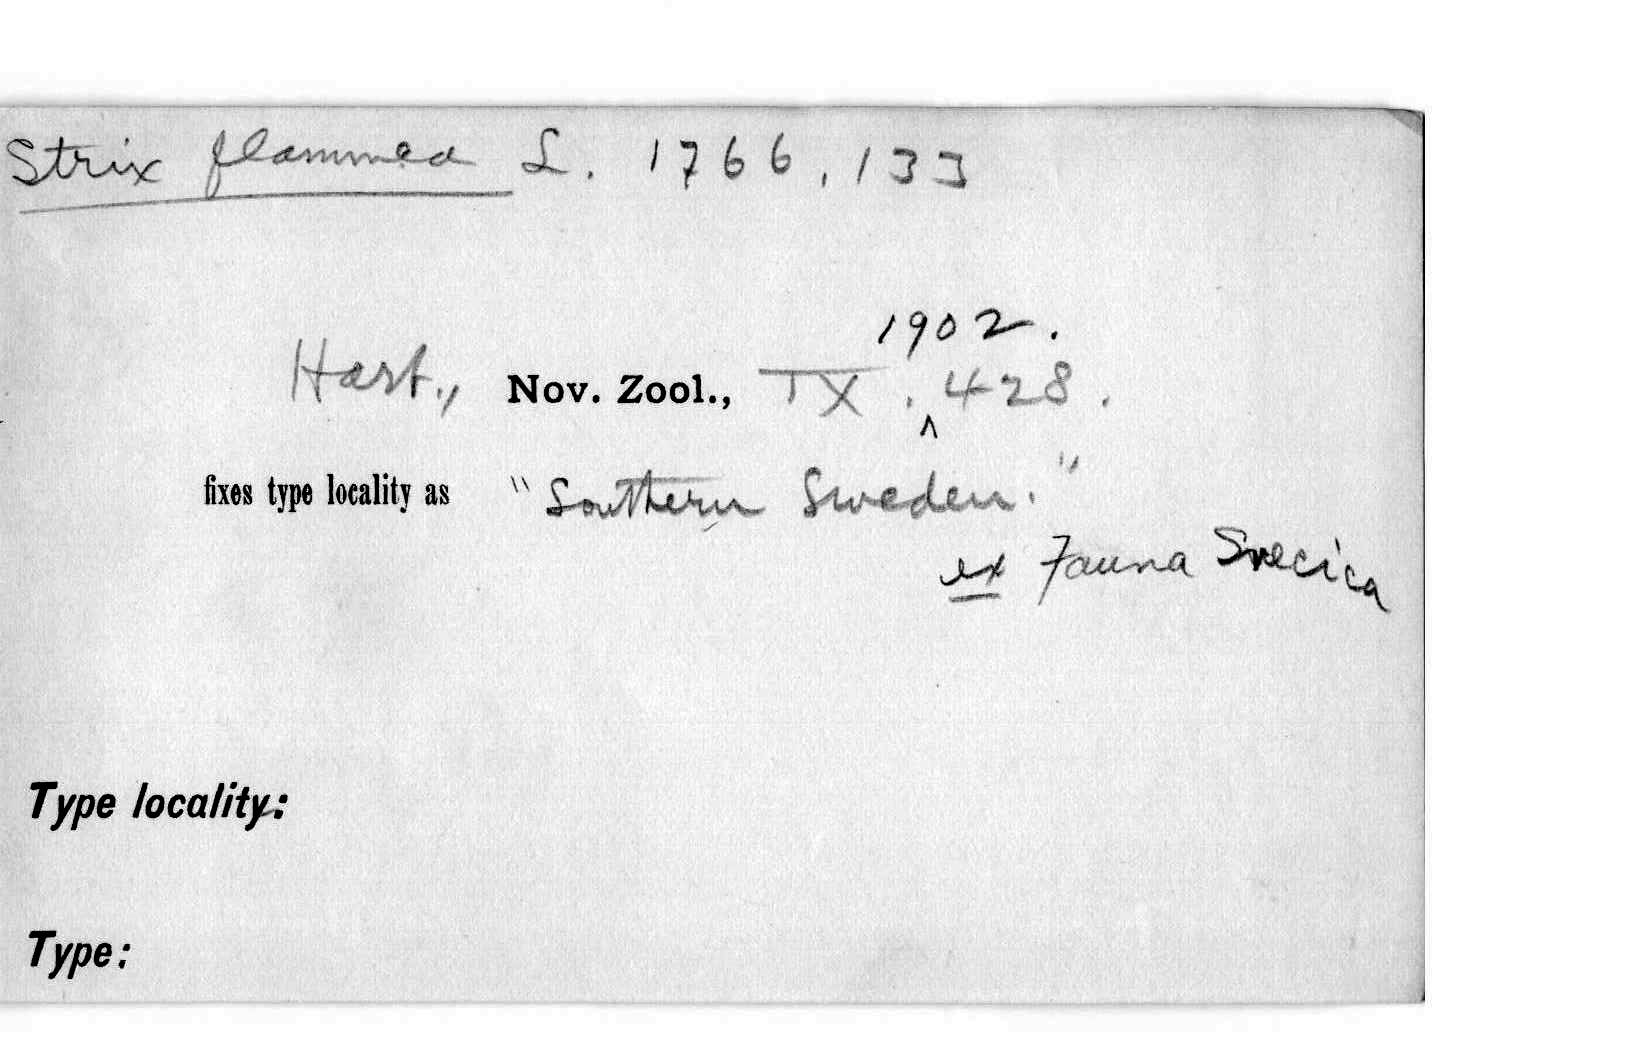 Strix flammea L. 1766, 133
1902.
Hart., Nov. Zool., IX . ^ 428.
fixes type locality as "Southern Sweden."
ex Fauna Svecica
Type locality:
Type: